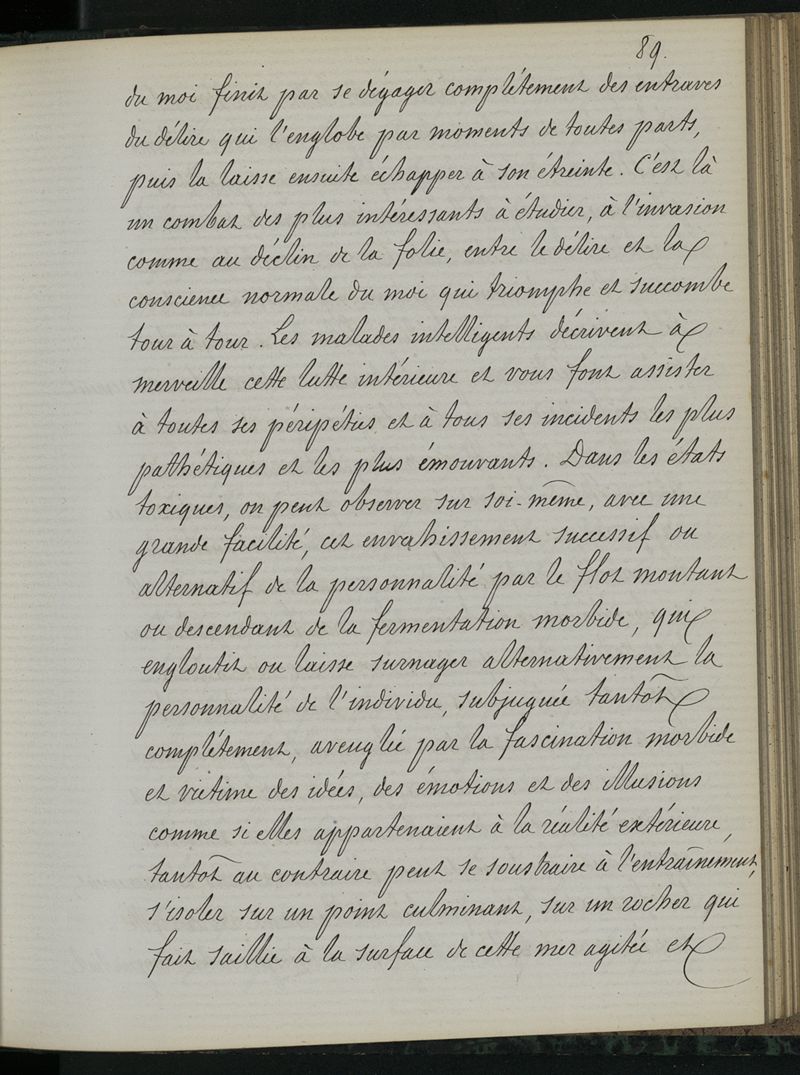 89.
du moi finit par se dégager complétement des entraves
du délire qui l'englobe par moments de toutes parts,
puis la laisse ensuite échapper à son étreinte. C'est là
un combat des plus intéressants à étudier, à l'invasion
comme au déclin de la folie, entre le délire et la
conscience normale du moi qui triomphe et succombe
tour à tour. Les malades intelligents décrivent à
merveille cette lutte intérieure et vous font assister
à toutes ses péripéties et à tous ses incidents les plus
pathétiques et les plus émouvants. Dans les états
toxiques, on peut observer sur soi-même, avec une
grande facilité, cet envahissement successif ou
alternatif de la personnalité par le flot montant
ou descendant de la fermentation morbide, qui
engloutit ou laisse surnager alternativement la
personnalité de l'individu, subjuguée tantôt
complétement, aveuglée par la fascination morbide
et victime des idées, des émotions et des illusions
comme si elles appartenaient à la réalité extérieure,
tantôt au contraire peut se soustraire à l'entraînement,
s'isoler sur un point culminant, sur un rocher qui
fait saillie à la surface de cette mer agitée et